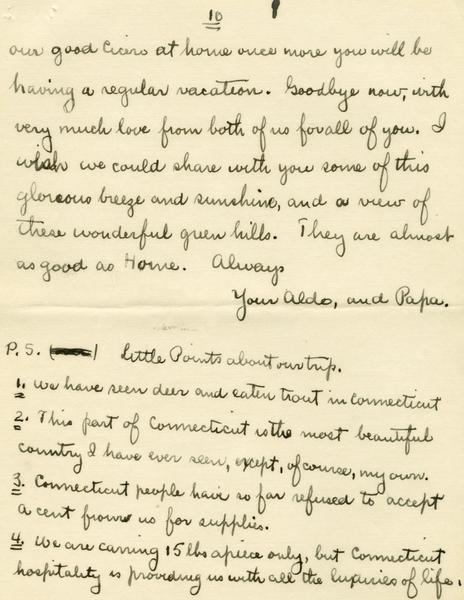 10
our good Cicero at home once more you will be
having a regular vacation. Goodbye now, with
very much love from both of us for all of you. I
wish we could share with you some of this
gloreous breeze and sunshine, and a view of
these wonderful green hills. They are almost
as good as Home. Always
Your Aldo, and Papa.
P.S. ( ) Little Points about our trip.
1. we have seen deer and eaten trout in Connecticut
2. This part of Connecticut is the most beautiful
country I have ever seen, except, of course, my own.
3. Connecticut people have so far refused to accept
a cent from us for supplies.
4. We are carring 15 lbs apiece only, but Connecticut
hospitality is providing us with all the luxuries of life.